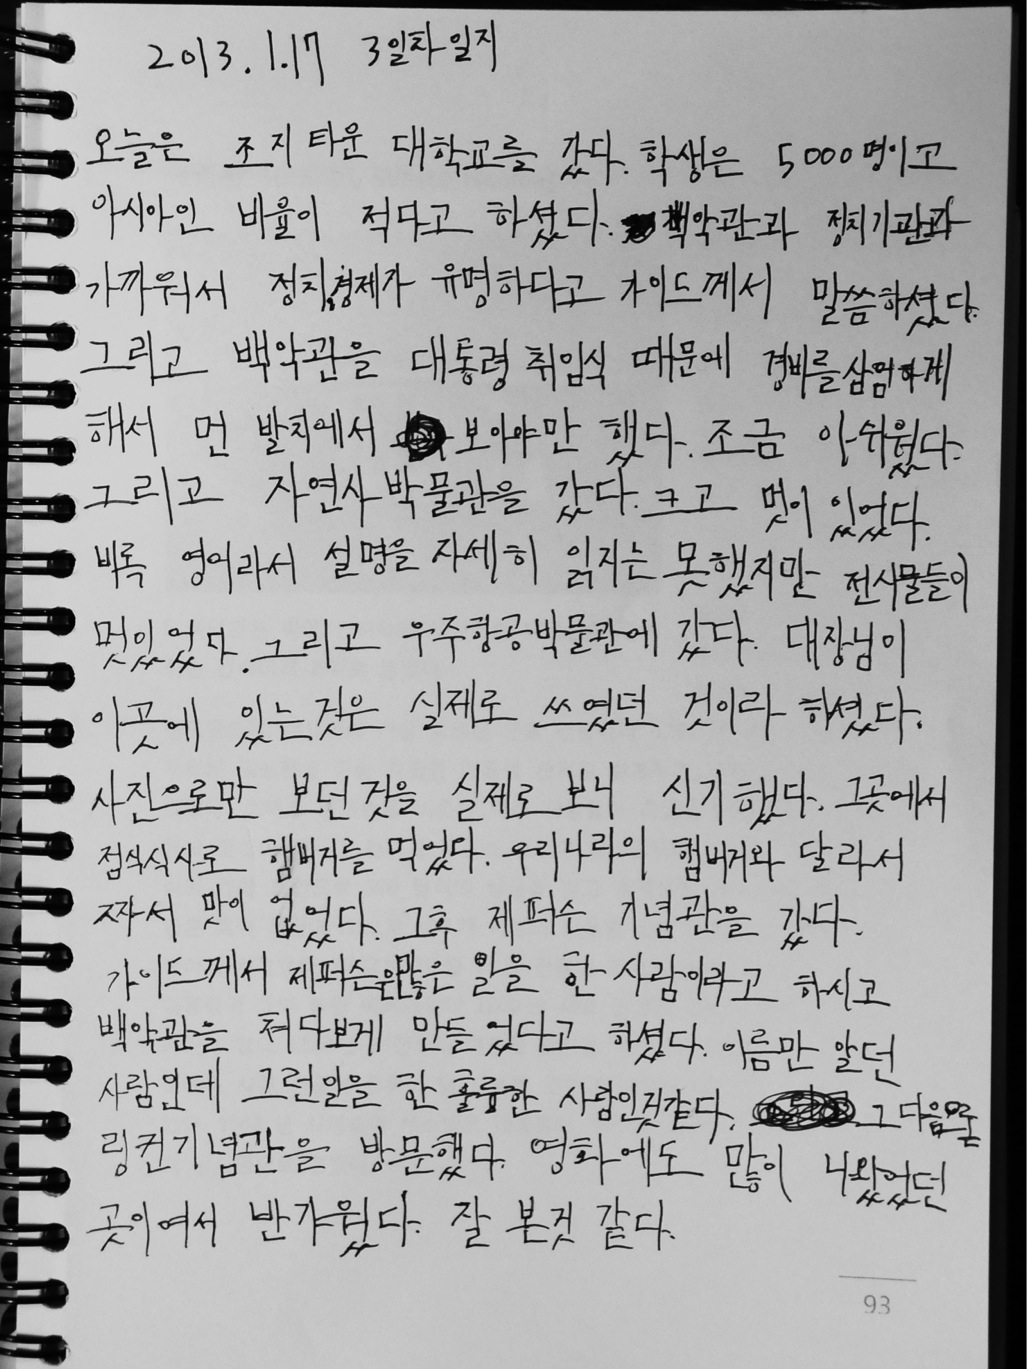 2013.1.17 3일차 일지
오늘은 조지 타운 대학교를 갔다. 학생은 5000명이고
아시아인 비율이 적다고 하셨다. 백악관과 정치기관과
가까워서 정치,경제가 유명하다고 가이드께서 말씀하셨다.
그리고 백악관을 대통령 취임식 때문에 경비를 삼엄하게
해서 먼 발치에서 보아야만 했다. 조금 아쉬웠다.
그리고 자연사 박물관을 갔다. 크고 멋이 있었다.
비록 영어라서 설명을 자세히 읽지는 못했지만 전시물들이
멋있었다. 그리고 우주항공박물관에 갔다. 대장님이
이곳에 있는것은 실제로 쓰였던 것이라 하셨다.
사진으로만 보던것을 실제로 보니 신기했다. 그곳에서
점심식사로 햄버거를 먹었다. 우리나라의 햄버거와 달라서
짜서 맛이 없었다. 그후 제퍼슨 기념관을 갔다.
가이드께서 제퍼슨은 많은 일을 한 사람이라고 하시고
백악관을 쳐다보게 만들었다고 하셨다. 이름만 알던
사람인데 그런일을 한 훌륭한 사람인것같다. 그 다음으로
링컨기념관을 방문했다. 영화에도 많이 나왔었던
곳이여서 반가웠다. 잘 본것 같다.
93